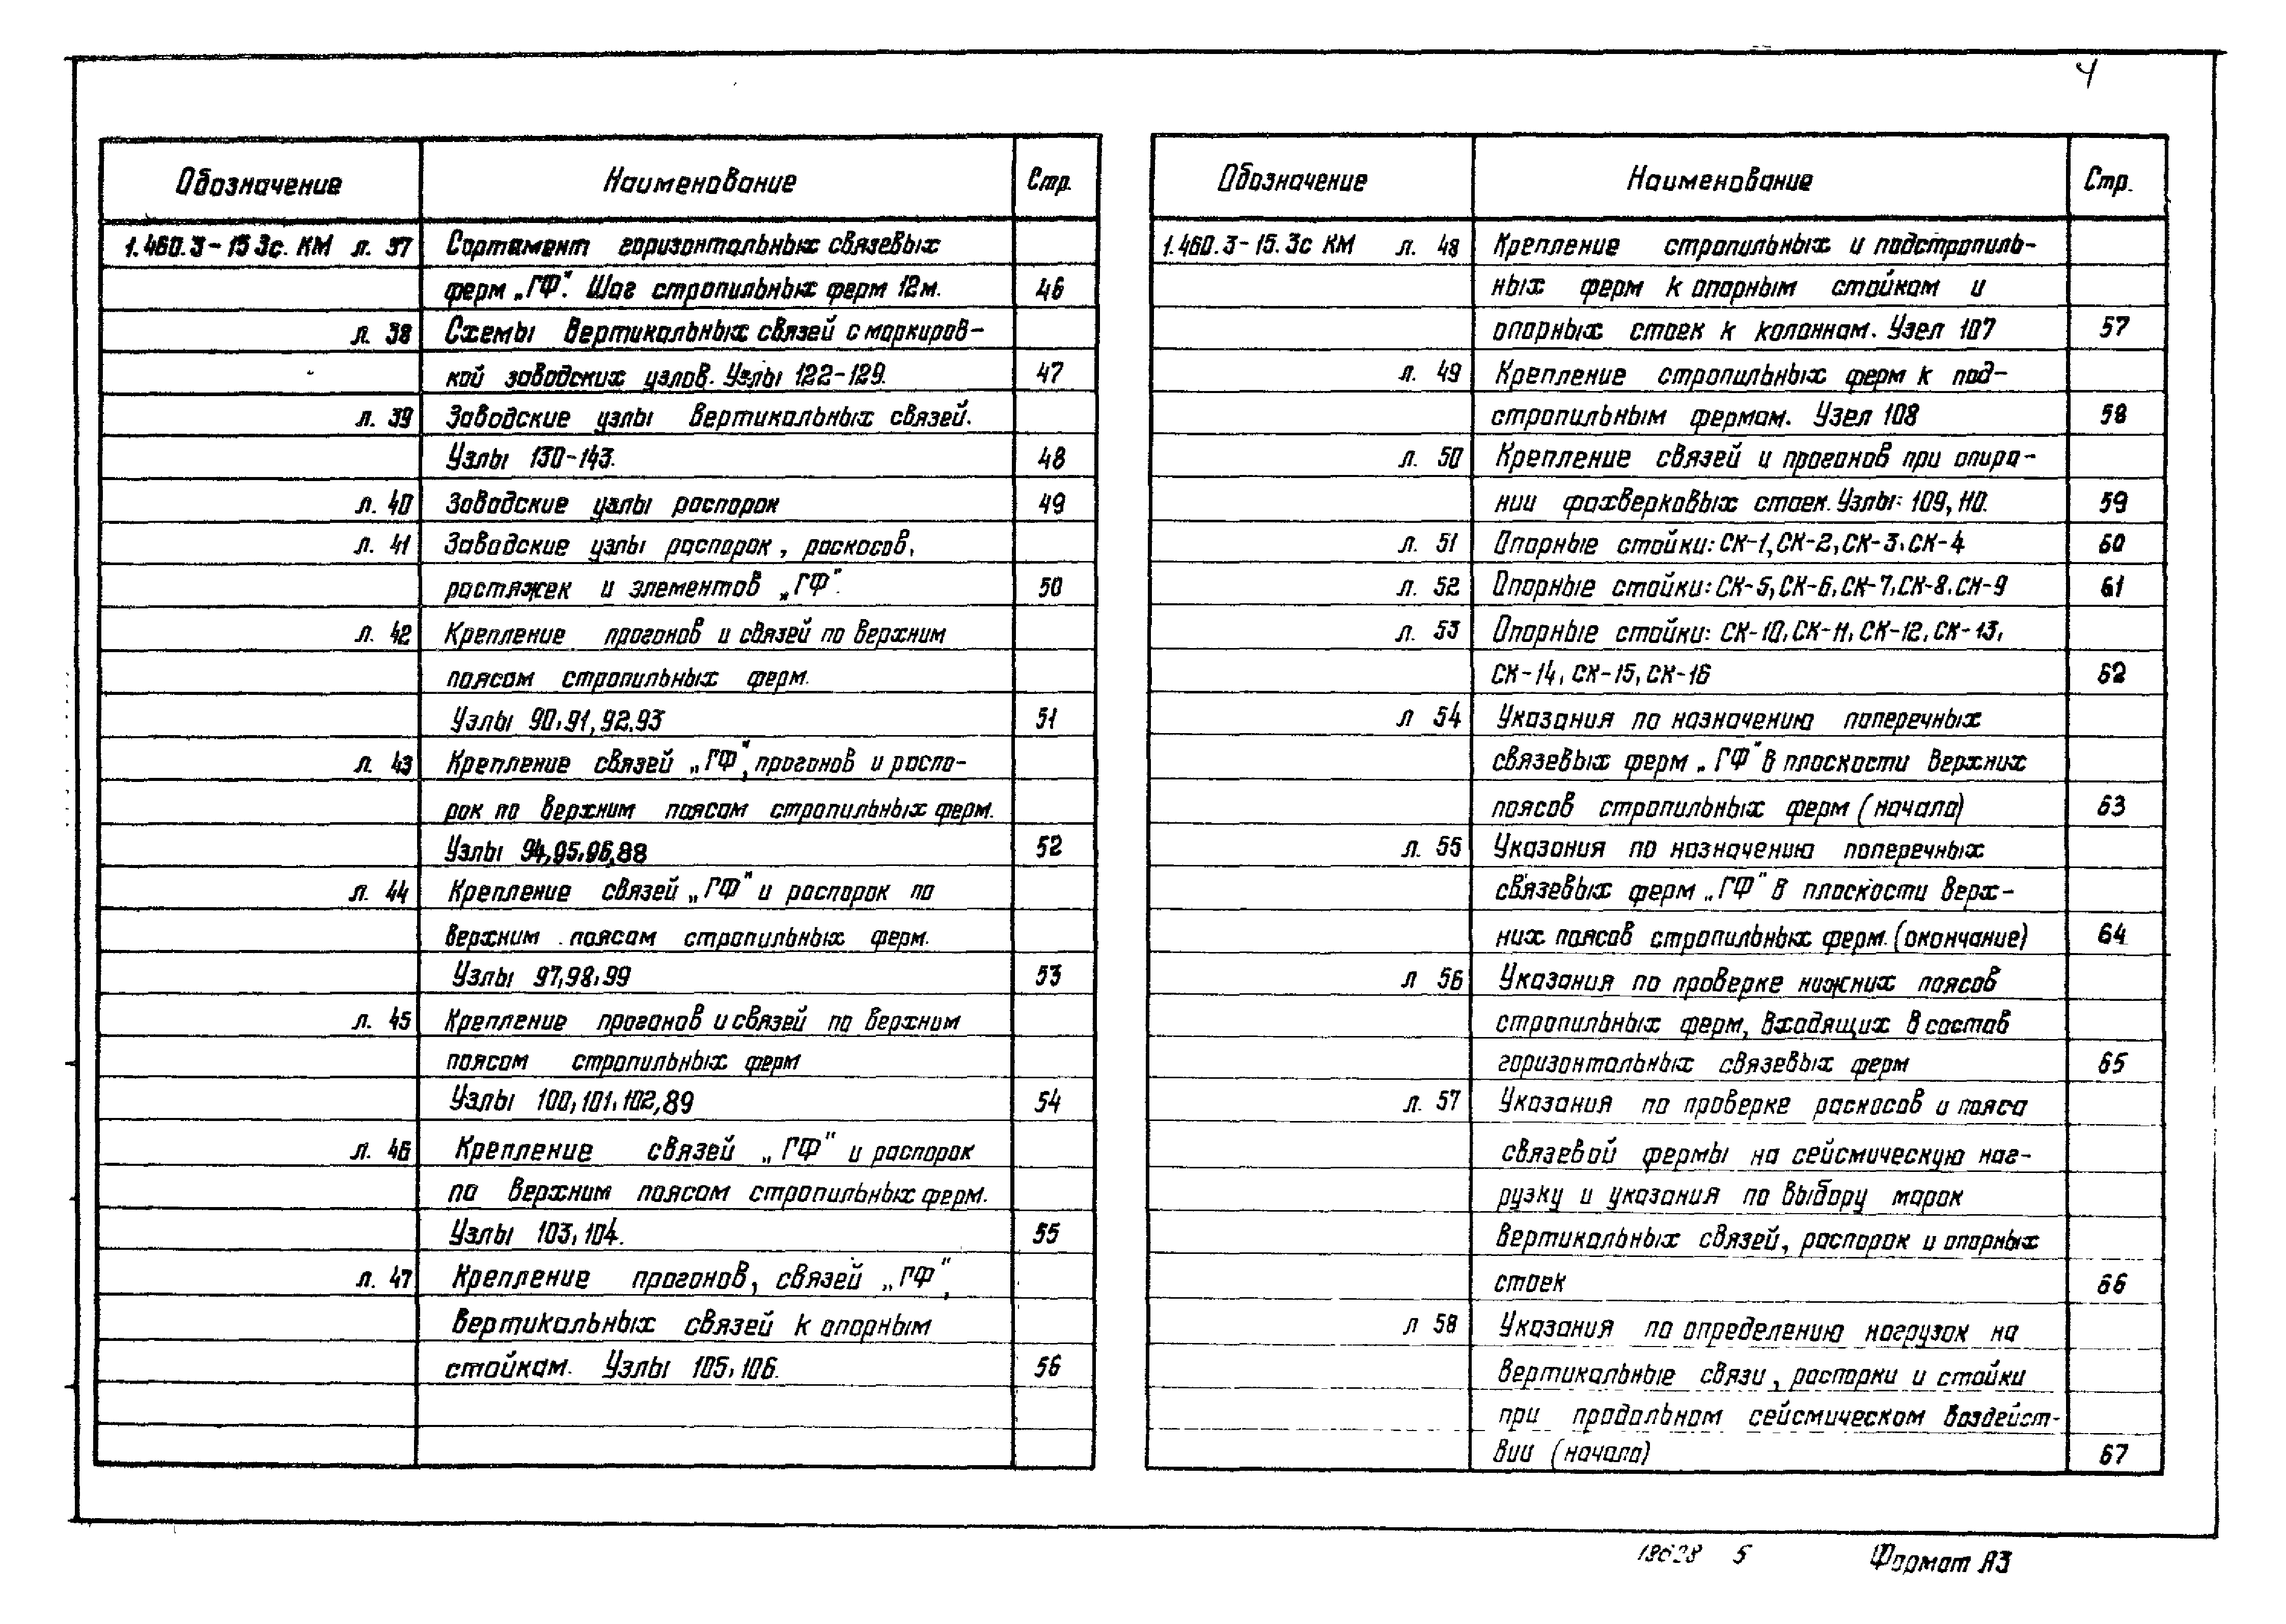 4
Обозначение Наименование Стр.
1.460.3-15 3с. КМ л. 37 Сортамент горизонтальных связевых
ферм „ГФ". Шаг стропильных ферм 12м. 46
л. 38 Схемы вертикальных связей с маркиров-
кой заводских узлов. Узлы 122-129. 47
л. 39 Заводские узлы вертикальных связей.
Узлы 130-143. 48
л. 40 Заводские узлы распорок 49
л. 41 Заводские узлы распорок, раскосов,
растяжек и элементов „ГФ". 50
л. 42 Крепление прогонов и связей по верхним
поясам стропильных ферм.
Узлы 90, 91, 92, 93 51
л. 43 Крепление связей „ГФ", прогонов и распо-
рок по верхним поясам стропильных ферм.
Узлы 94, 95, 96, 88 52
л. 44 Крепление связей „ГФ" и распорок по
верхним поясам стропильных ферм.
Узлы 97, 98, 99 53
л. 45 Крепление прогонов и связей по верхним
поясам стропильных ферм
Узлы 100, 101, 102, 89 54
л. 46 Крепление связей „ГФ" и распорок
по верхним поясам стропильных ферм.
Узлы 103, 104. 55
л. 47 Крепление прогонов, связей „ГФ",
вертикальных связей к опорным
стойкам. Узлы 105, 106. 56
Обозначение Наименование Стр.
1.460.3-15.3с КМ л. 48 Крепление стропильных и подстропиль-
ных ферм к опорным стойкам и
опорных стоек к колоннам. Узел 107 57
л. 49 Крепление стропильных ферм к под-
стропильным фермам. Узел 108 58
л. 50 Крепление связей и прогонов при опира-
нии фахверковых стоек. Узлы: 109, 110. 59
л. 51 Опорные стойки: СК-1, СК-2, СК-3, СК-4 60
л. 52 Опорные стойки: СК-5, СК-6, СК-7, СК-8, СК-9 61
л. 53 Опорные стойки: СК-10, СК-11, СК-12, СК-13,
СК-14, СК-15, СК-16 62
л 54 Указания по назначению поперечных
связевых ферм „ГФ" в плоскости верхних
поясов стропильных ферм (начало) 63
л. 55 Указания по назначению поперечных
связевых ферм „ГФ" в плоскости верх-
них поясов стропильных ферм. (окончание) 64
л 56 Указания по проверке нижних поясов
стропильных ферм, входящих в состав
горизонтальных связевых ферм 65
л. 57 Указания по проверке раскосов и пояса
связевой фермы на сейсмическую наг-
рузку и указания по выбору марок
вертикальных связей, распорок и опорных
стоек 66
л 58 Указания по определению нагрузок на
вертикальные связи, распорки и стойки
при продольном сейсмическом воздейст-
вии (начало) 67
18628 5 Формат А3